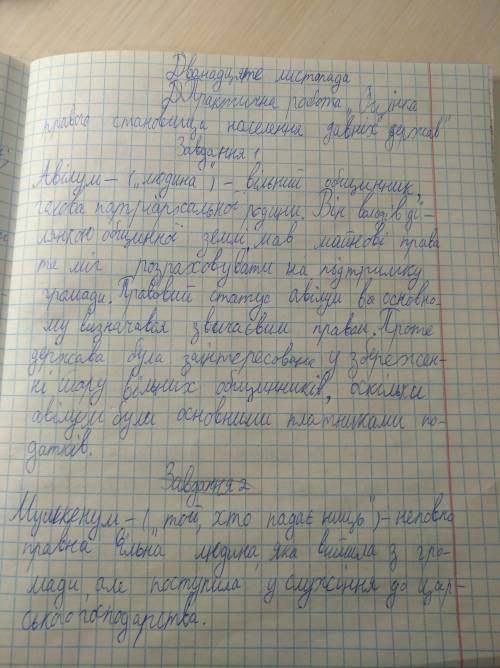 Дванадцяте листопада
Практична робота „Оцінка
правого становища населення давніх держав"
Завдання 1
Авілум – („людина") – вільний общинник,
голова патріархальної родини. Він володів ді-
лянкою общинної землі, мав майнові права
та міг розраховувати на підтримку
громади. Правовий статус авілума в основно-
му визначався звичаєвим правом. Проте
держава була заінтересована у збережен-
ні шару вільних общинників, оскільки
авілуми були основними платниками по-
датків.
Завдання 2
Мушкенум – („той, хто падає ниць") – неповно
правна вільна людина, яка вийшла з гро-
мади, але поступила у служіння до цар-
ського господарства.